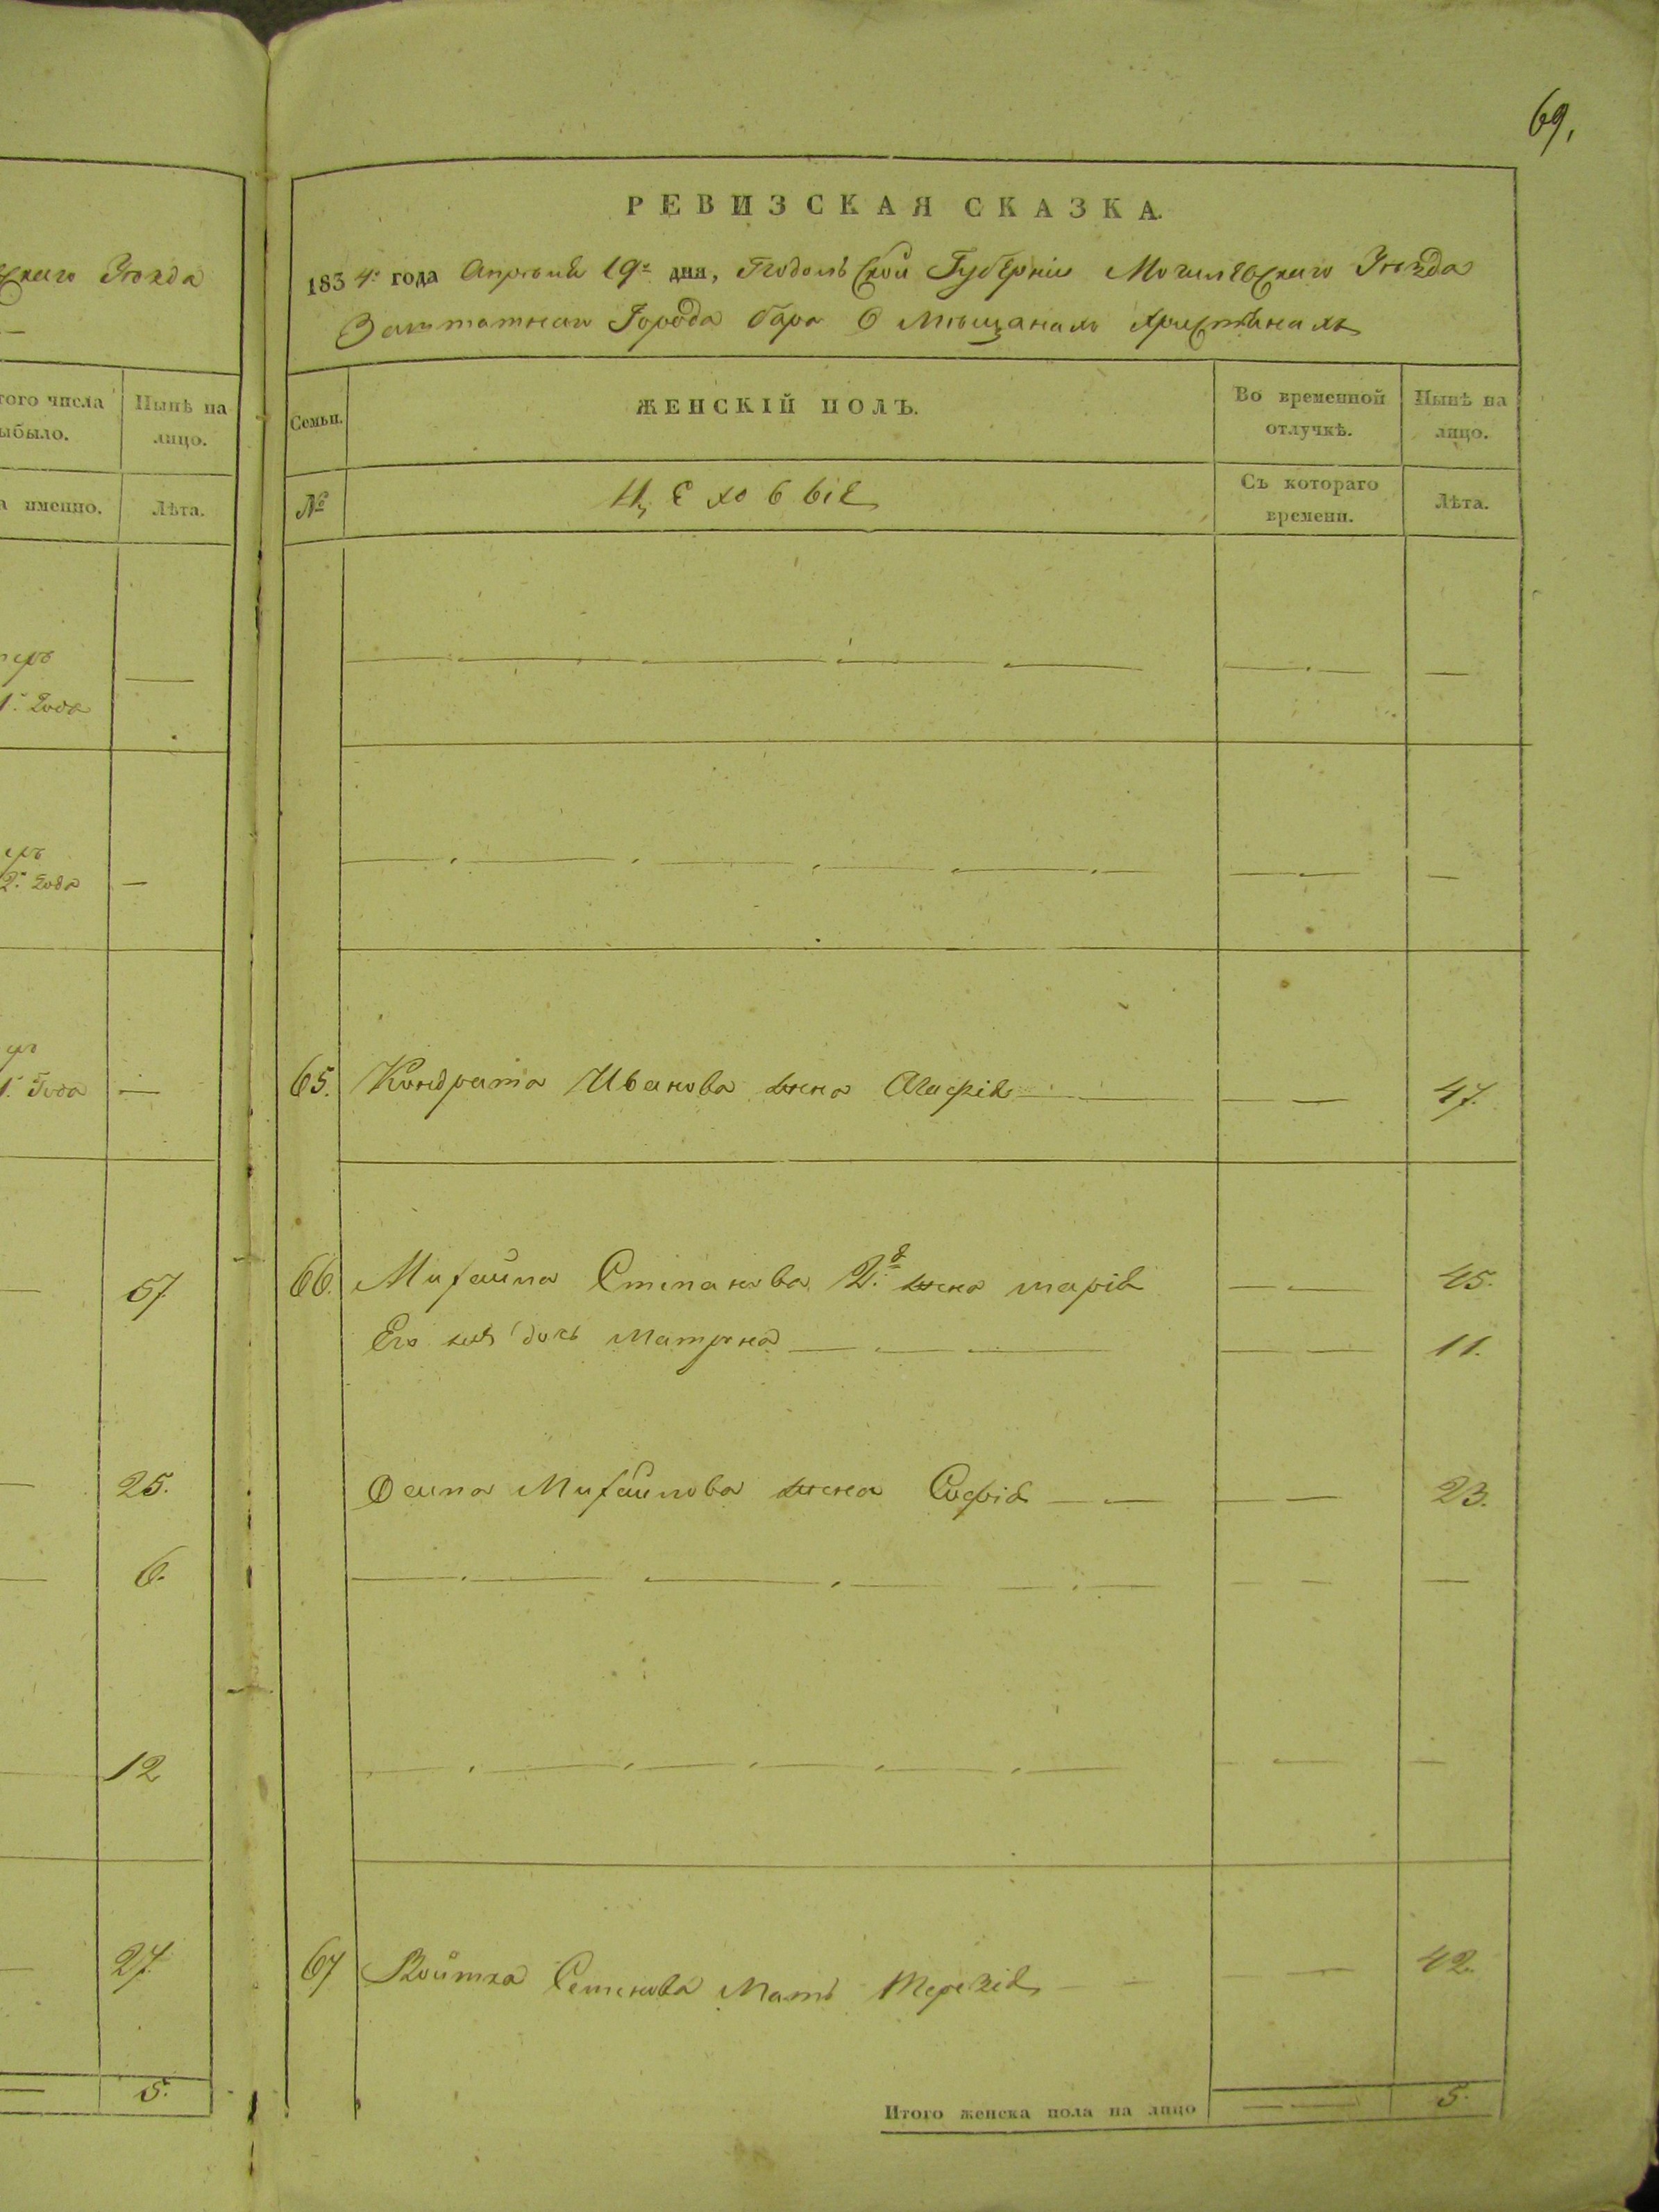 69.
скаго Уѣзда
того числа
выбыло.
Нынѣ на
лицо.
а именно.
Лѣта.
1. Года
2. Года
1. Года
57
25.
6.
12
27.
5.
РЕВИЗСКАЯ СКАЗКА.
1834. года Апрѣля 19. дня, Подольской Губерніи Могилевскаго Уѣзда
Заштатнаго Города Бара О Мѣщанахъ Христіанахъ
Семьи.
ЖЕНСКІЙ ПОЛЪ.
Во временной
отлучкѣ.
Нынѣ на
лицо.
№
Цеховыіе
Съ котораго
времени.
Лѣта.
65. Кондрата Иванова жена Агафія 47.
66. Михайла Степанова 2.я жена марія 45.
Его дочь Матрона 11.
Осипа Михайлова жена Софія 23.
67 Войтка Семенова Мать Терезія 42.
Итого женска пола на лицо 5.